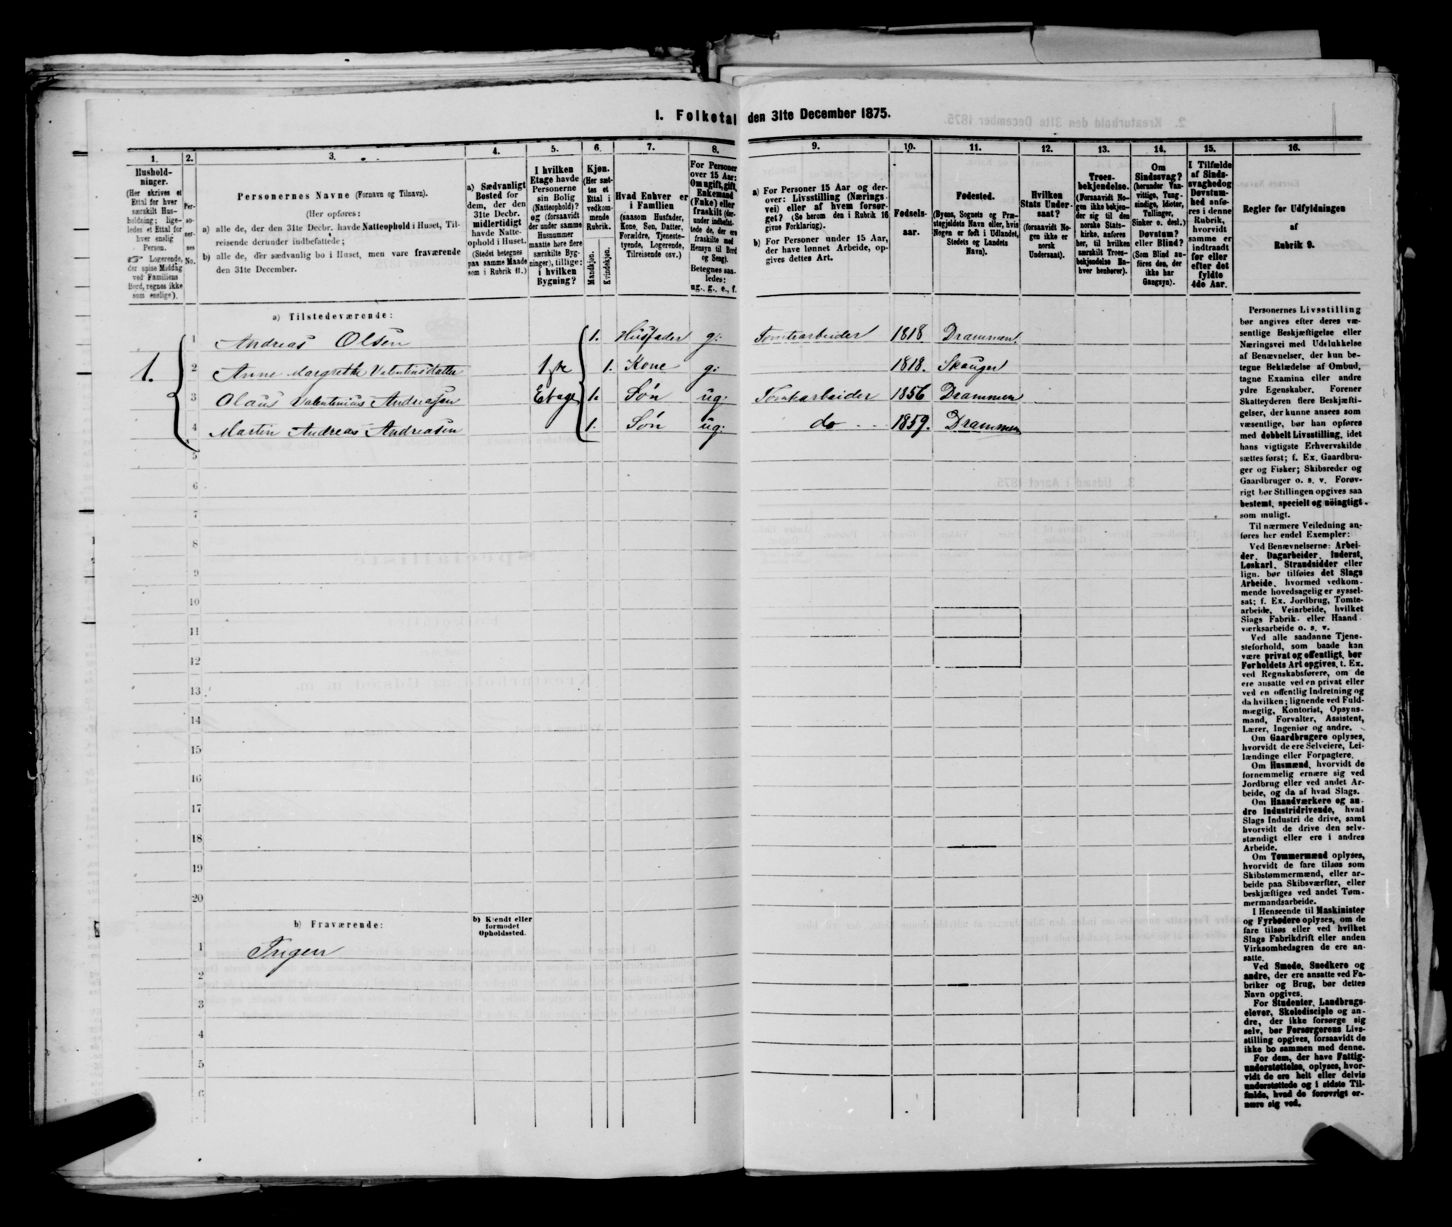 I. Folketal den 31te December 1875.
1.
Hushold-
ninger.
(Her skrives et
Ettal for hver
særskilt Hus-
holdning; lige-
ledes et Ettal for
hver enslig
Person.
☞ Logerende,
der spise Middag
ved Familiens
Bord, regnes ikke
som enslige).
2.
Per-
so-
ner-
nes
No.
3.
Personernes Navne (Fornavn og Tilnavn).
(Her opføres:
a) alle de, der den 31te Decbr. havde Natteophold i Huset, Til-
reisende derunder indbefattede;
b) alle de, der sædvanlig bo i Huset, men vare fraværende
den 31te December.
4.
a) Sædvanligt
Bosted for
dem, der den
31te Decbr.
midlertidigt
havde Natte-
ophold i Huset.
(Stedet betegnes
paa samme Maade
som i Rubrik 11.)
5.
I hvilken
Etage havde
Personerne
sin Bolig
(Natteophold)?
og (forsaavidt
der under samme
Husnummer
maatte høre flere
særskilte Byg-
ninger), tillige:
i hvilken
Bygning?
6.
Kjøn.
(Her sæt-
tes et
Ettal i
vedkom-
mende
Rubrik.
Mandkjøn.
Kvindekjøn.
7.
Hvad Enhver er
i Familien
(saasom Husfader,
Kone, Søn, Datter,
Forældre, Tjeneste-
tyende, Logerende,
Tilreisende osv.)
8.
For Personer
over 15 Aar:
Om ugift, gift,
Enkemand
(Enke) eller
fraskilt (der-
under indbefat-
tede de, der ere
fraskilte med
Hensyn til Bord
og Seng).
Betegnes saa-
ledes:
ug., g., e., f.
9.
a) For Personer 15 Aar og der-
over: Livsstilling (Nærings-
vei) eller af hvem forsør-
get? (Se herom den i Rubrik 16
givne Forklaring).
b) For Personer under 15 Aar,
der have lønnet Arbeide, op-
gives dettes Art.
10.
Fødsels-
aar.
11.
Fødested.
(Byens, Sognets og Præ-
stegjeldets Navn eller, hvis
Nogen er født i Udlandet,
Stedets og Landets
Navn).
12.
Hvilken
Stats Under-
saat?
(forsaavidt No-
gen ikke er
norsk
Undersaat).
13.
Troes-
bekjendelse.
(Forsaavidt No-
gen ikke bekjen-
der sig til den
norske Stats-
kirke, anføres
her, til hvilken
særskilt Troes-
bekjendelse En-
hver henhører).
14.
Om
Sindssvag?
(herunder Van-
vittige, Tung-
sindige, Idioter,
Tullinger,
Sinker o. desl.)
Døvstum?
eller Blind?
(Som Blind an-
føres den, der
ikke har
Gangsyn).
15.
I Tilfælde
af Sinds-
svaghed og
Døvstum-
hed anfø-
res i denne
Rubrik,
hvorvidt
samme er
indtraadt
før eller
efter det
fyldte
4de Aar.
16.
Regler for Udfyldningen
af
Rubrik 9.
a) Tilstedeværende:
1. 1 Andreas Olsen 1. Husfader g: Tomtearbeider 1818 Drammen
2 Anne Margrethe Valentinsdatter 1ste 1. Kone g: 1818. Skauger
3 Olaus Valentinius Andreasen Etage 1. Søn ug: Tomtearbeider 1856 Drammen
4 Martin Andreas Andreasen 1. Søn ug: do - - 1859. Drammen
5
6
7
8
9
10
11
12
13
14
15
16
17
18
19
20
b) Fraværende:
b) Kjendt eller
formodet
Opholdssted.
1 Ingen
2
3
4
5
6
Personernes Livsstilling
bør angives efter deres væ-
sentlige Beskjæftigelse eller
Næringsvei med Udelukkelse
af Benævnelser, der kun be-
tegne Beklædelse af Ombud,
tagne Examina eller andre
ydre Egenskaber. Forener
Skatteyderen flere Beskjæfti-
gelser, der kunne ansees som
væsentlige, bør han opføres
med dobbelt Livsstilling, idet
hans vigtigste Erhvervskilde
sættes først; f. Ex. Gaardbru-
ger og Fisker; Skibsreder og
Gaardbruger o. s. v. Forøv-
rigt bør Stillingen opgives saa
bestemt, specielt og nøiagtigt
som muligt.
Til nærmere Veiledning an-
føres her endel Exempler:
Ved Benævnelserne: Arbei-
der, Dagarbeider, Inderst,
Løskarl, Strandsidder eller
lign. bør tilføies det Slags
Arbeide, hvormed vedkom-
mende hovedsagelig er syssel-
sat; f. Ex. Jordbrug, Tomte-
arbeide, Veiarbeide, hvilket
Slags Fabrik- eller Haand-
værksarbeide o. s. v.
Ved alle saadanne Tjene-
steforhold, som baade kan
være privat og offentligt, bør
Forholdets Art opgives, t. Ex.
ved Regnskabsførere, om de
ere ansatte ved en privat eller
ved en offentlig Indretning og
da hvilken; lignende ved Fuld-
mægtig, Kontorist, Opsyns-
mand, Forvalter, Assistent,
Lærer, Ingeniør og andre.
Om Gaardbrugere oplyses,
hvorvidt de ere Selveiere, Lei-
lændinge eller Forpagtere.
Om Husmænd, hvorvidt de
fornemmelig ernære sig ved
Jordbrug eller ved andet Ar-
beide, og da af hvad Slags.
Om Haandværkere og an-
dre Industridrivende, hvad
Slags Industri de drive, samt
hvorvidt de drive den selv-
stændigt eller ere i andres
Arbeide.
Om Tømmermænd oplyses,
hvorvidt de fare tilsøs som
Skibstømmermænd, eller ar-
beide paa Skibsværfter, eller
beskjæftiges ved andet Tøm-
mermandsarbeide.
I Henseende til Maskinister
og Fyrbødere oplyses, om de
fare tilsøs eller ved hvilket
Slags Fabrikdrift eller anden
Virksomhedsgren de ere an-
satte.
Ved Smede, Snedkere og
andre, der ere ansatte ved Fa-
briker og Brug, bør dettes
Navn opgives.
For Studenter, Landbrugs-
elever, Skoledisciple og an-
dre, der ikke forsørge sig
selv, bør Forsørgerens Livs-
stilling opgives, forsaavidt de
ikke bo sammen med denne.
For dem, der have Fattig-
understøttelse, oplyses, hvor-
vidt de ere helt eller delvis
understøttede og i sidste Til-
fælde, hvad de forøvrigt er-
nære sig ved.